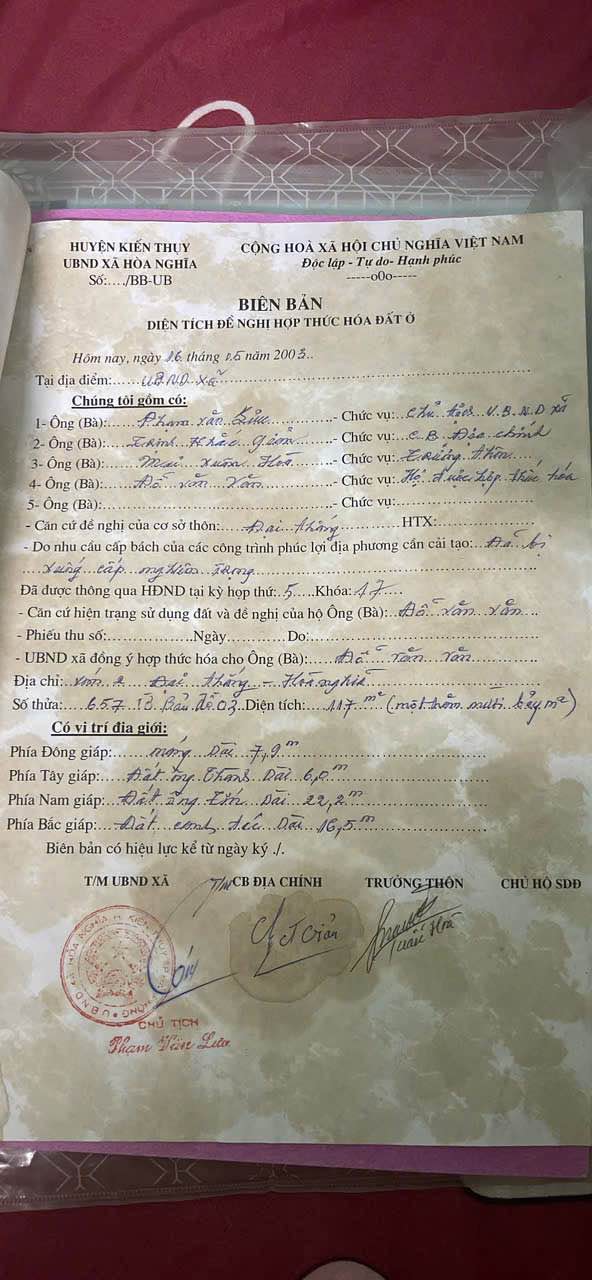 HUYỆN KIẾN THỤY
UBND XÃ HÒA NGHĨA
Số:..../BB-UB
CỘNG HOÀ XÃ HỘI CHỦ NGHĨA VIỆT NAM
Độc lập - Tự do- Hạnh phúc
-----o0o-----
BIÊN BẢN
DIỆN TÍCH ĐỀ NGHỊ HỢP THỨC HÓA ĐẤT Ở
Hôm nay, ngày 16 tháng 05 năm 2003..
Tại địa điểm:......UBND xã
Chúng tôi gồm có:
1- Ông (Bà):....Phạm văn Lưu............- Chức vụ:...Chủ tịch U.B.N.D xã
2- Ông (Bà):....Trịnh Khắc Giản........- Chức vụ:...C.B Địa chính
3- Ông (Bà):....Mai Xuân Hoà..........- Chức vụ:...Trưởng thôn
4- Ông (Bà):....Đỗ văn Vắn............- Chức vụ: Hộ được hợp thức hóa
5- Ông (Bà):.............................- Chức vụ:..................
- Căn cứ đề nghị của cơ sở thôn:....Đại thắng............HTX:................
- Do nhu cầu cấp bách của các công trình phúc lợi địa phương cần cải tạo:...Đã bị
xuống cấp nghiêm trọng
Đã được thông qua HĐND tại kỳ họp thứ:..5....Khóa:.17....
- Căn cứ hiện trạng sử dụng đất và đề nghị của hộ Ông (Bà):...Đỗ văn vắn..
- Phiếu thu số:...............Ngày...........Do:.......................
- UBND xã đồng ý hợp thức hóa cho Ông (Bà):....Đỗ văn vắn
Địa chỉ:...xóm 2 Đại thắng - Hoà nghĩa
Số thửa:...657 Tờ Bản đồ 03.Diện tích:...117 m² (một trăm mười bảy m²)
Có vị trí địa giới:
Phía Đông giáp:......máng Dài 7,9 m
Phía Tây giáp:...Đất ông Thanh Dài 6,0 m
Phía Nam giáp:...Đất ông Dài 22,2 m
Phía Bắc giáp:...Đất Dài 16,5 m
Biên bản có hiệu lực kể từ ngày ký ./.
T/M UBND XÃ
CB ĐỊA CHÍNH
TRƯỞNG THÔN
CHỦ HỘ SDĐ
Giản
Xuân Hoà
U.B.N.D XÃ HÒA NGHĨA H. KIẾN THỤY
CHỦ TỊCH
Phạm Văn Lưu